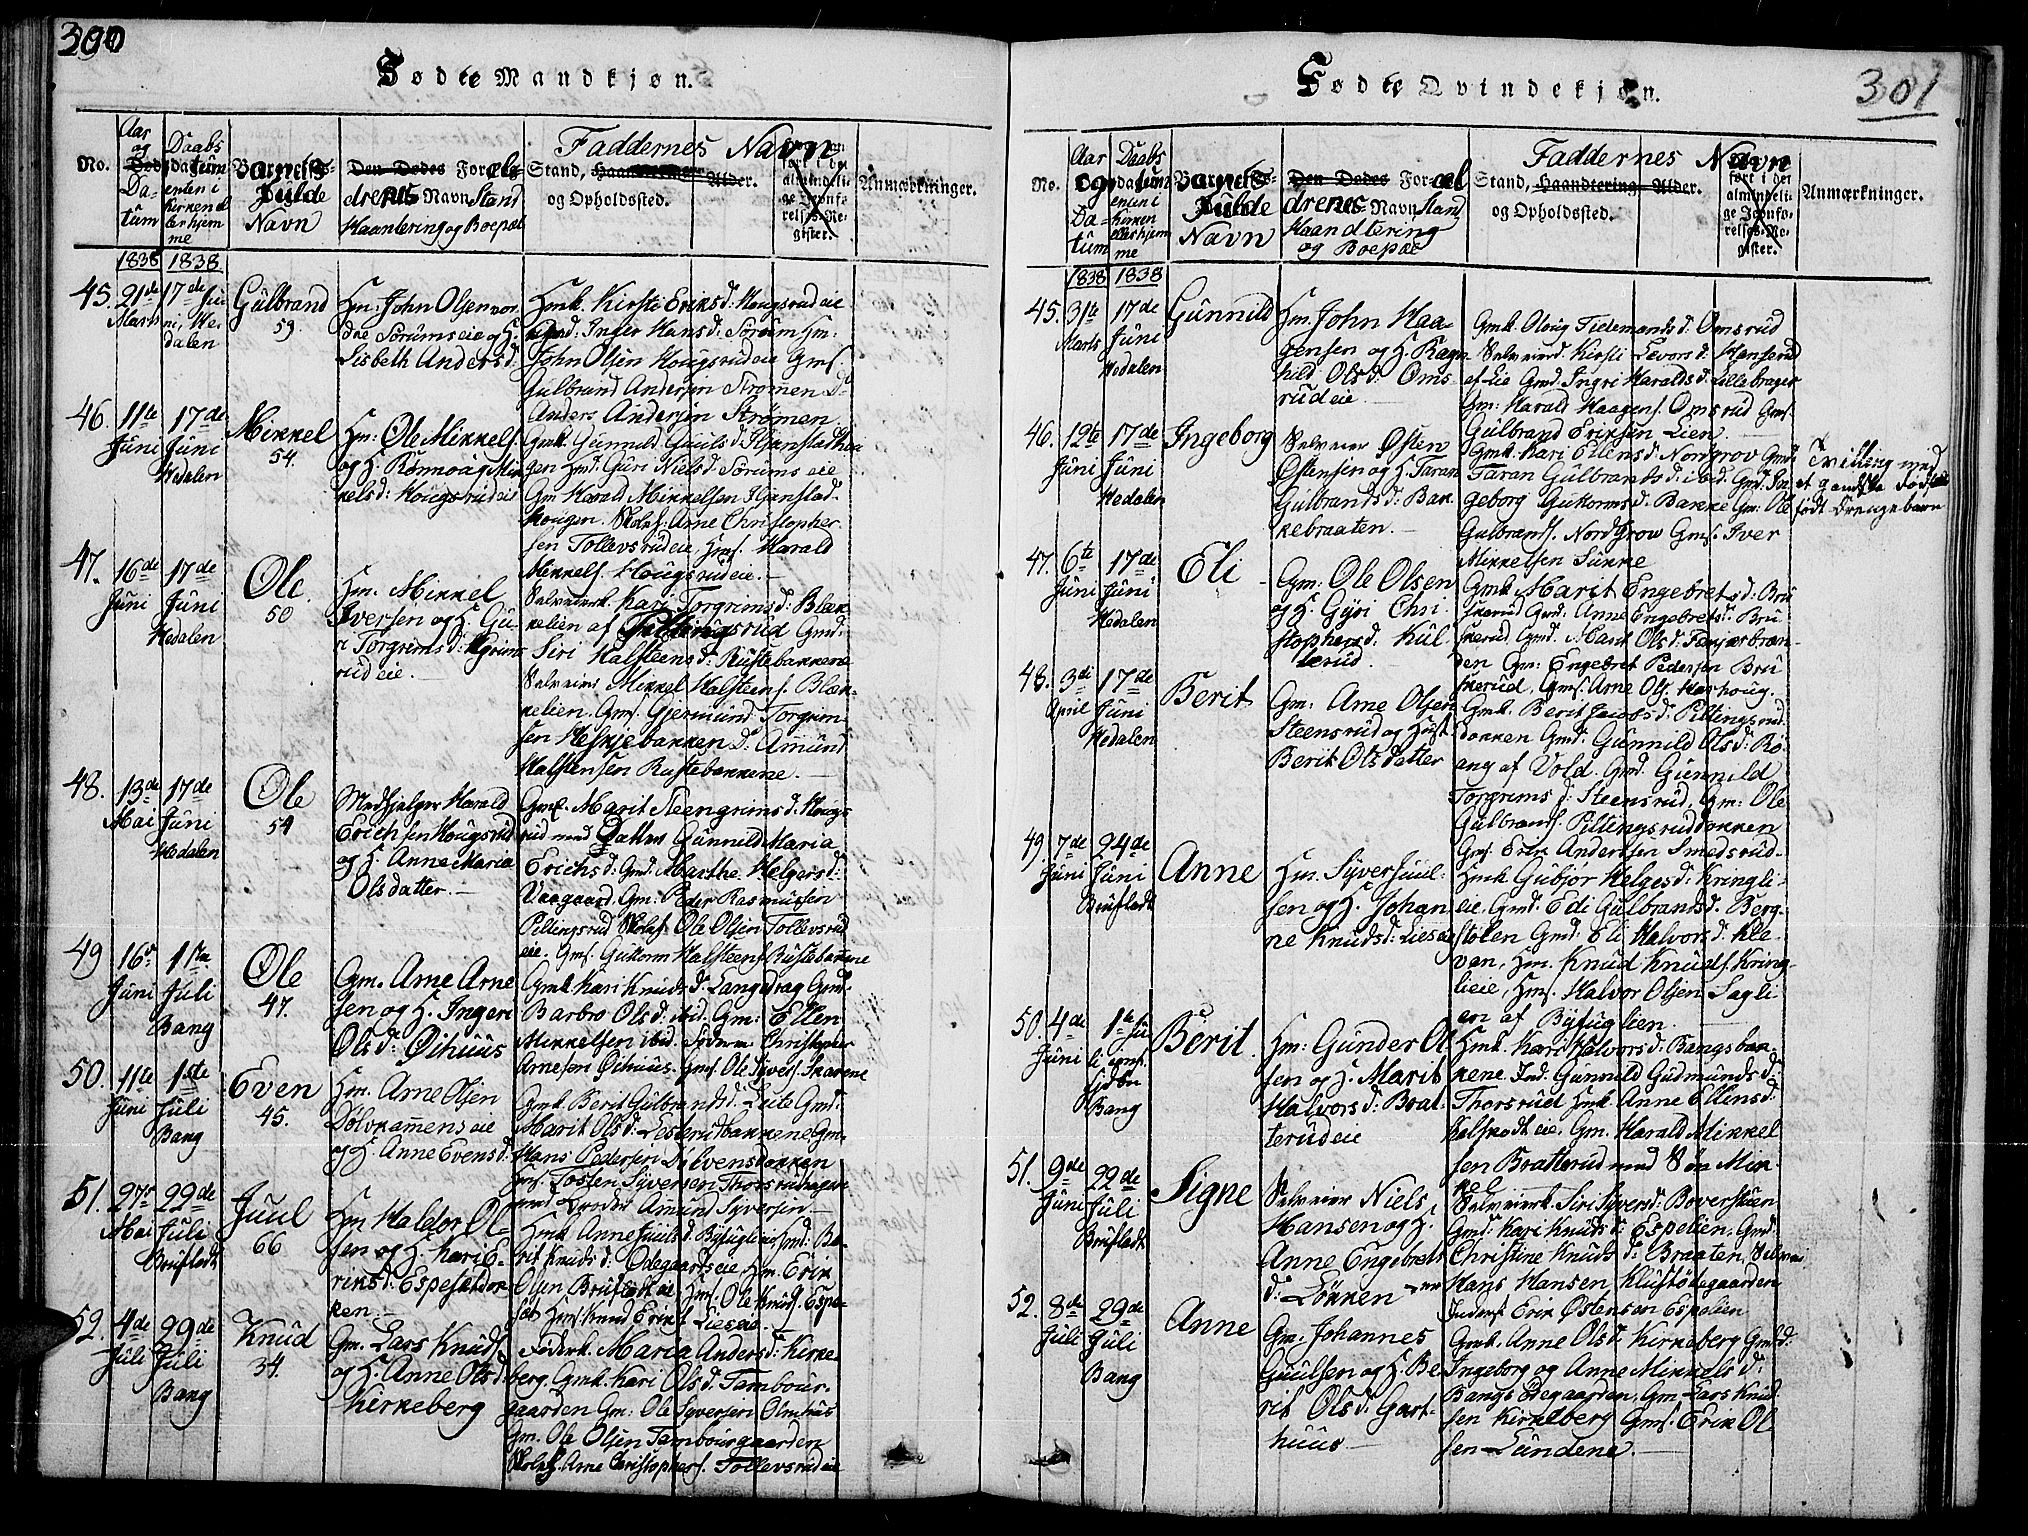 300
Fødte Mandkjøn.
No.
Aar og Datum
Daabs datum enten i kirken el ler hjemme
Barnets fulde Navn
Den Dødes Forældrenes Navn Stand Haantering og Boepæl
Faddernes Navn
Stand, Haandtering Alder. og Opholdssted.
ført i det almindelige Jevnførelses-Register.
Anmærkninger.
1838 1838
45. 21de Marts
17de Juni, Hedalen
Gulbrand
59.
Hm: John Olsen
Sørumseie og H.
Lisbeth Anders d:
Hmk. Kirsti Eriks d: Hougsrudeie
Gmd: Inger Hans d: Sørum Hm:
John Olsen Hougsrudeie Gmf
Gulbrand Andersen Strømen D:
Anders Andersen Strømen.
46. 11te Juni
17de Juni Hedalen
Mikkel
54.
Hm: Ole Mikkels.
og H. Rønnoug Mik
kelsd: Hougsrudeie
Gmk Gunnild Guuls d: Hjanstadhou
gen Hmd: Guri Niels d: Sørums eie
Gm Harald Mikkelsen Hjanstad-
hougen. Skolef: Arne Christopher
sen Tollevsrudeie, Hmf. Harald
Mikkels. Hougsrudeie.
47. 16de Juni
17de Juni Hedalen
Ole
50
Hm. Mikkel
Iversen og H. Gu
ri Torgrims d:
rud eie.
Selveierk. Kari Torgrims d: Blæk
kelien af
Siri Halsteens d: Rustebakkene
Selveier Mikkel Halsteens. Blæk-
kelien. Gmf. Gjermund Torgrim-
sen Heskjebakken D: Amund
Halstensen Rustebakkene.
48. 13de Mai
17de Juni Hedalen
Ole
54
Medhjelper Harald
Erichsen Hougsrud
og H. Anne Maria
Olsdatter.
Gmk. Marit Steengrims d: Hougs
rud med Datter Gunnild Maria
Erichs d: Gmd: Marthe Helgers d:
Vaagaard. Gm: Peder Rasmussen
Pillingsrud Skolef: Ole Olsen Tollevsrud
eie. Gmf. Gukorm Halsteens. Rustebakkene
49 16de Juni
1ste Juli Bang
Ole
47.
Gm. Arne Arne
sen og H. Ingeri
Ols d: Øihuus
Gmk Kari Knuds d: Langedrag Gmd:
Barbro Ols d: ibid. Gm: Ellen
Mikkelsen ibid. Christopher
Arnesen Øihuus. Gmf. Ole Syvers. Skarene
50. 11te Juni
1ste Juli Bang
Even
45.
Hm. Arne Olsen
Dølvkammens eie
og H. Anne Evens d:
Gmk. Berit Gulbrands d: Leite Gmd:
Marit Ols d: Lesterudbakkene Gm.
Hans Pedersen Dølvensdokken
Hmf. Tosten Syversen Thorsrudengen
med Broder Amund Syversen
51. 27de Mai
22de Juli Brufladt
Juul
66
Hm Haldor Ol-
sen og H. Kari E-
riks d: Espesætdok
ken.
Hmk Anne Juuls d: Byfuglieie Hmd: Be
rit Knuds d: Ødegaardseie Hm. Erik
Olsen Brufladteie Hmf. Ole Knuds. Espe
sæt Hmf. Knud Eriks Lieseie
52. 4de Juli
29de Juli Bang
Knud
34.
Gm. Lars Knuds.
og H. Anne Ols d:
Kirkeberg
Føderk. Maria Anders d: Kirke
berg. Gmk. Kari Ols d. Tambour-
gaarden Gm: Ole Syversen Olmhus
Gm. Ole Olsen Tambourgaarden
Skolef. Arne Christophers. Tollevsrudeie
301
Fødte Qvindekjøn.
No.
Aar og Datum
Daabs datum enten i kirken eller hjemme
Barnets fulde Navn
Den Dødes Forældrenes Navn Stand Haandtering og Boepæl
Faddernes Navn
Stand, Haandtering Alder. og Opholdssted.
ført i det almindelige Jevnførelses-Register.
Anmærkninger.
1838 1838
45. 31te Marts
17de Juni Hedalen
Gunnild
Hm. John Haa-
gensen og H. Ragn
hild Ols d: Oms
rudeie
Gmk. Oloug Tidemands d: Omsrud
Selveierd. Kirsti Levors d: Hanserud
af Lie Gmd: Ingri Haralds d: Lillebrager
Gm: Harald Haagens. Omsrud Gmf.
Gulbrand Eriksen Lien.
46. 12te Juni
17de Juni Hedalen
Ingeborg
Selveier Østen
Østensen og H. Taran
Gulbrands d: Bak
kebraaten.
Gmk: Kari Ellens d: Nordgrov Gmd:
Taran Gulbrands d: ibid. Gmd: In
geborg Gukorms d: Bakke Gm: Ole
Gulbrands. Nordgrov Gmf. Iver
Mikkelsen Sukke
Tvilling med
et dødfødt
født Drengebarn
47. 6te Juni
17de Juni Hedalen
Eli
Gm: Ole Olsen
og H. Gyri Chri
stophers d: Kul
terud
Gmk. Marit Engebrets d: Bru
skerud Gmd: Anne Engebrets d: Bru
skerud Gmd: Marit Ols d:
den Gm: Engebret Pedersen Bru
skerud, Gmf. Arne Ols. Karhoug.
48. 3die April
17de Juni Hedalen
Berit
Gm: Arne Olsen
Steensrud og Hust
Berit Olsdatter
Gmk. Berit Jacobs d: Pillingsrud
dokken Gmd: Gunnild Ols d: Rø
ang af Vold. Gmd: Gunnild
Torgrims d: Steensrud, Gm: Ole
Gulbrands. Pillingsruddokken
Gmf. Erik Andersen Smedsrud
49. 7de Juni
24de Juni Brufladt
Anne
Hm. Syver Juul-
sen og H. Johan
ne Knuds d: Lieseie
Hmk Gubjør Helges d: Kringli
eie. Gmd: Edi Gulbrands d. Berg-
støten Gmd: Eli Halvors d: Kle-
ven, Hm. Knud Knuds. Kring-
lieie, Hmf. Halvor Olsen Sagli
en af Byfuglien.
50. 4de Juni
1ste Juli Bang
Berit.
Hm: Gunder Ol
sen og H. Marit
Halvors d: Brat
terudeie
Hmk. Kari Halvors d: Bangsbak
kene Ind: Gunnild Gudmunds d:
Thorsrud Hmk. Anne Ellens d:
eie, Gm. Harald Mikkel
sen Bratterud med Søn Mik-
kel
51. 9de Juni
22de Juli Brufladt
Signe
Selveier Niels
Hansen og H:
Anne Engebrets
d: Løkken
Selveierk. Siri Syvers d: Bøverstuen
Gmd: Kari Knuds d: Espelien, Gmd:
Christine Knuds d: Braaten, Selveier
Hans Hansen Klustødegaarden
Inderst Erik Østensen Espelien
52. 8de Juli
29de Juli Bang
Anne
Gm. Johannes
Guulsen og H. Be
rit Ols d: Gart
huus
Gmk. Anne Ols d. Kirkeberg Gmd:
Ingeborg og Anne Mikkels d:
Bangs Ødegaarden, Gm. Lars Knud
sen Kirkeberg Gmf. Erik Ol
sen Lundene.